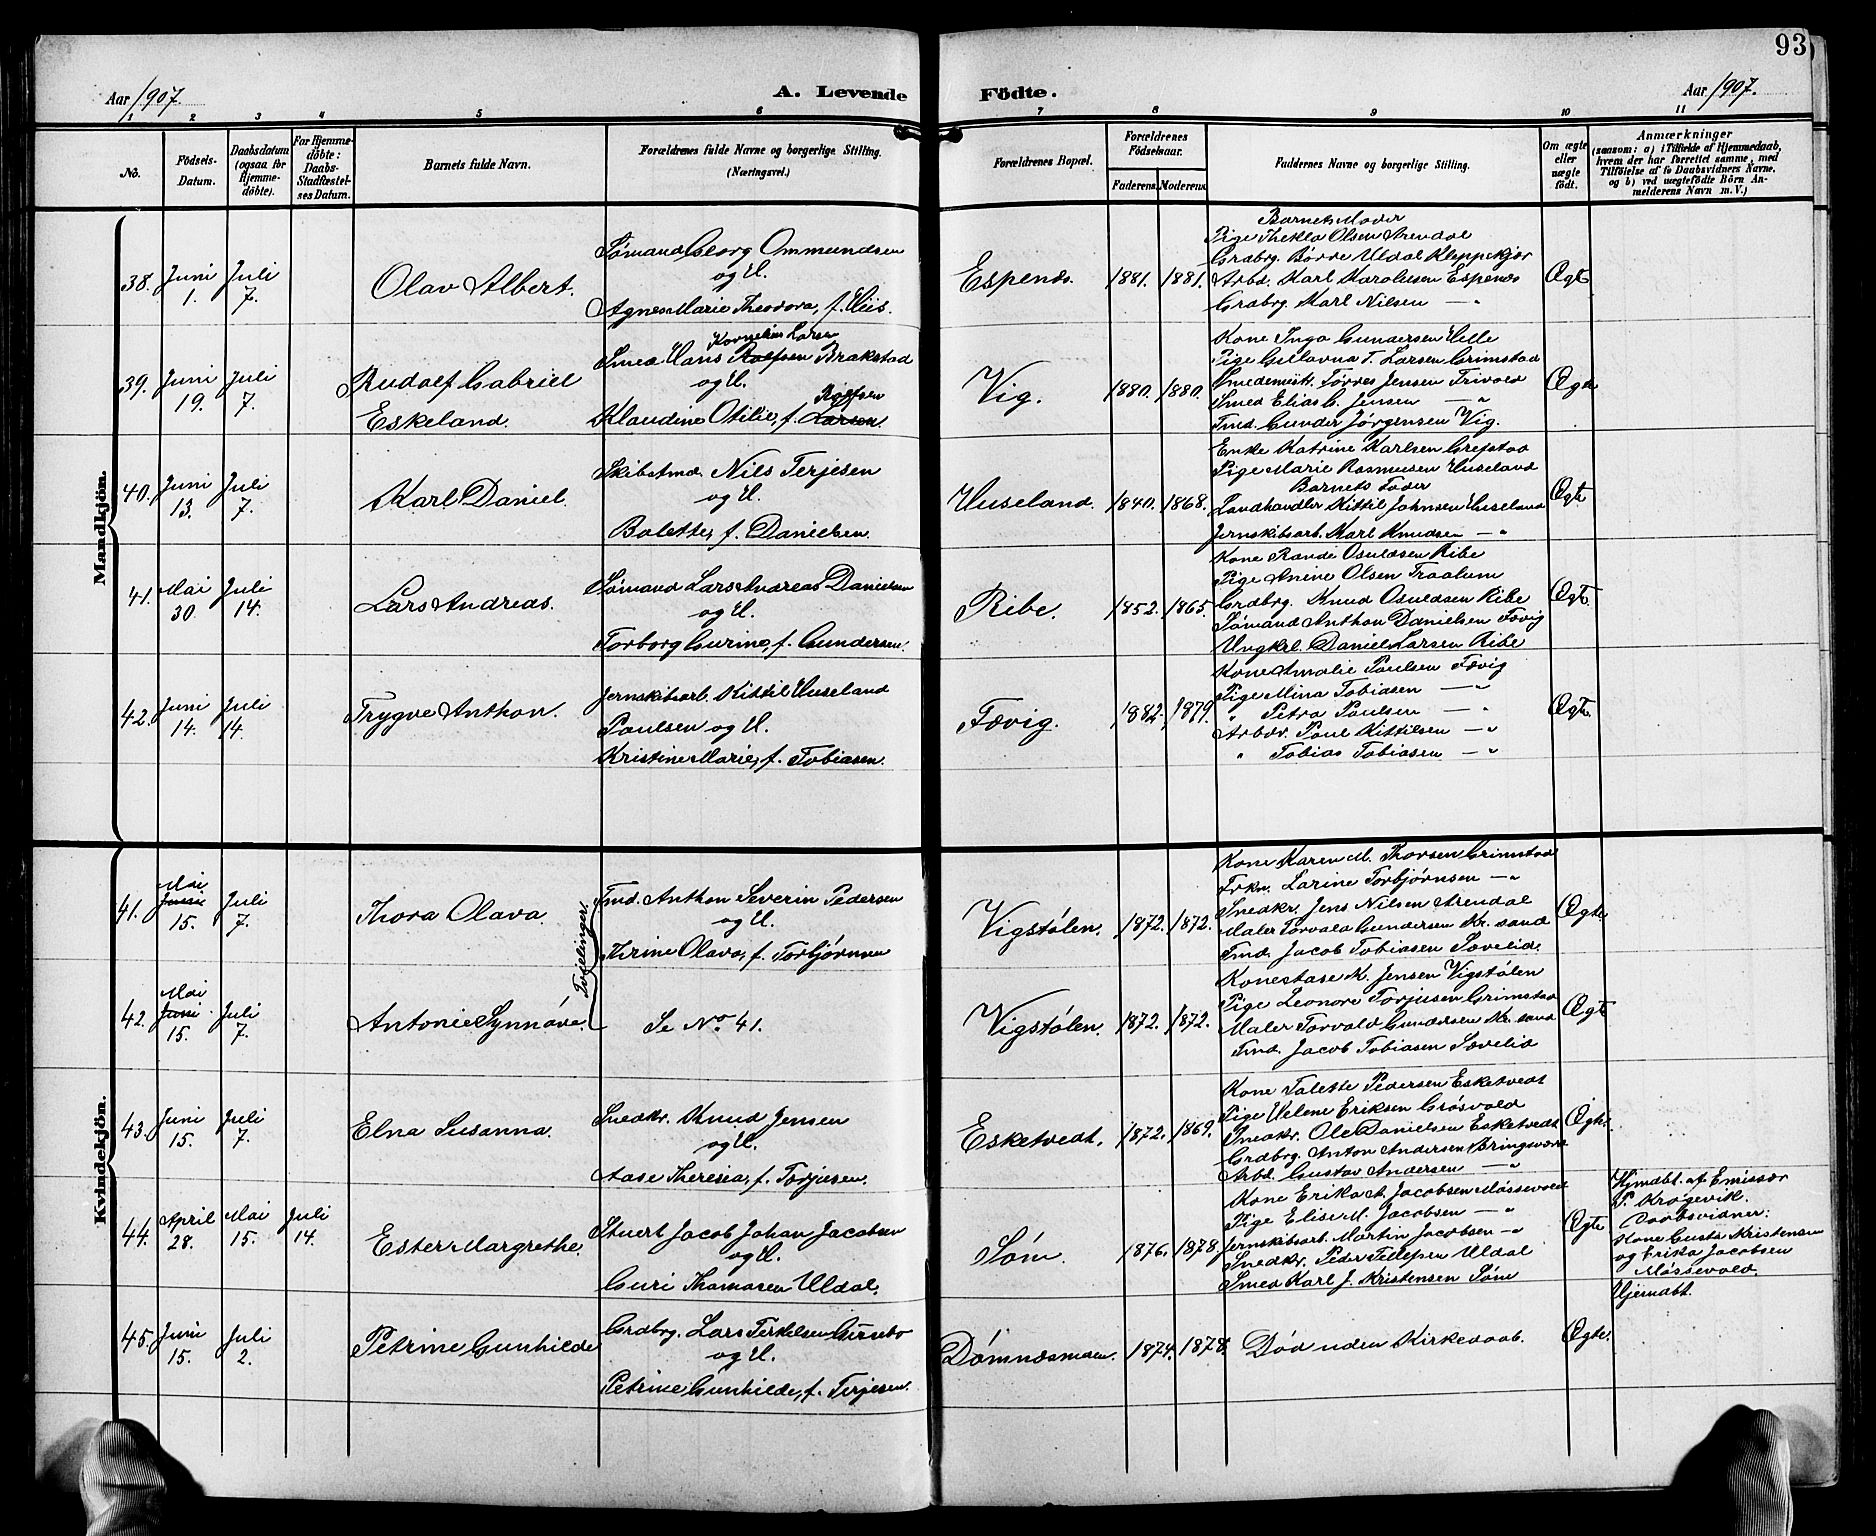 93
Aar 1907.
A. Levende
Födte.
Aar 1907.
1 2 3 4 5 6 7 8 9 10 11
No.
Födsels-
Datum.
Daabsdatum
(ogsaa for
Hjemme-
döbte).
For Hjemme-
döbte:
Daabs-
Stadfæstel-
ses Datum.
Barnets fulde Navn.
Forældrenes fulde Navne og borgerlige Stilling.
(Næringsvei.)
Forældrenes Bopæl.
Forældrenes
Födselsaar.
Faderens. Moderens.
Faddernes Navne og borgerlige Stilling.
Om ægte
eller
uægte
födt.
Anmærkninger
(saasom: a) i Tilfælde af Hjemmedaab,
hvem der har forrettet samme, med
Tilföielse af to Daabsvidners Navne,
og b) ved uægtefödte Börn An-
melderens Navn m. V.)
Mandkjön.
38. Juni
1.
Juli
7.
Olav Albert.
Sømand Georg Ommundsen
og H.
Agnes Marie Theodora, f. Hiis.
Espenes. 1881. 1881.
Barnets Moder
Pige Thekla Olsen Arendal
Grdbrg. Børre Uldal Kleppekjær
Arbd. Karl Karolusen Espenes
Grdbrg. Karl Nilsen — "
Ægte
39. Juni
19.
Juli
7.
Rudolf Gabriel
Eskeland.
Kornelius Larsen
Smed Hans Rolfsen Brakstad
og H.
Rolfsen
Klaudine Otilie, f. Larsen.
Vig. 1880. 1880.
Kone Inga Gundersen Helle
Pige Gullovna T. Larsen Grimstad
Smedemstr. Torres Jensen Trivold
Smed Elias G. Jensen — "
Tmd. Gunder Jørgensen Vig.
Ægte
40. Juni
13.
Juli
7.
Karl Daniel.
Skibstmd. Nils Terjesen
og H.
Bolette, f. Danielsen.
Huseland. 1840. 1868.
Enke Katrine Karlsen Grefstad
Pige Marie Rasmusen Huseland
Barnets Fader
Landhandler Kittil Johnsen Huseland
Jernskibsarb. Karl Knudsen — "
Ægte
41. Mai
30.
Juli
14.
Lars Andreas.
Sømand Lars Andreas Danielsen
og H.
Torborg Gurine, f. Gundersen.
Ribe. 1852. 1865.
Kone Randi Osuldsen Ribe
Pige Anine Olsen Traalum
Grdbrg. Knud Osuldsen Ribe
Sømand Anthon Danielsen Fævig
Ungkrl. Daniel Larsen Ribe
Ægte
42. Juni
14.
Juli
14.
Trygve Anthon.
Jernskibsarb. Kittil Huseland
Paulsen og H.
Kristine Marie, f. Tobiasen.
Fævig. 1882. 1879.
Kone Amalie Paulsen Fævig
Pige Mina Tobiasen — "
" Petra Paulsen — "
Arbdr. Paul Kittilsen — "
" Tobias Tobiasen — "
Ægte
Kvindekjön.
41. Mai
Juni
15.
Juli
7.
Thora Olava.
Tvillinger.
Tmd. Anthon Severin Pedersen
og H.
Thrine Olava, f. Torbjørnsen
Vigstølen. 1872. 1872.
Kone Karen M. Thorsen Grimstad
Frkn. Larine Torbjørnsen — "
Snedkr. Jens Nilsen Arendal
Maler Torvald Gundersen Kr. sand
Tmd. Jacob Tobiasen Sævelid.
Ægte
42. Mai
Juni
15.
Juli
7.
Antonie Synnöve.
Se No. 41.
Vigstølen. 1872. 1872.
Kone Aase K. Jensen Vigstølen
Pige Leonore Torjusen Grimstad
Maler Torvald Gundersen Kr. sand
Tmd. Jacob Tobiasen Sævelid
Ægte
43. Juni
15.
Juli
7.
Elna Susanna.
Snedkr. Knud Jensen
og H.
Aase Theresia, f. Torjusen.
Esketvedt. 1872. 1869.
Kone Talette Pedersen Esketvedt
Pige Helene Eriksen Grøsvold
Snedkr. Ole Danielsen Esketvedt
Grdbrg. Anton Andersen Bringsværd
Arbd. Gustav Andersen — "
Ægte.
44. April
28.
Mai
15.
Juli
14.
Ester Margrethe.
Stuert Jacob Johan Jacobsen
og H.
Guri Thomasen Uldal.
Søm. 1876. 1878.
Kone Erika A. Jacobsen Møssevold
Pige Elise M. Jacobsen — "
Jernskibsarb. Martin Jacobsen — "
Snedkr. Peder Tellefsen Uldal
Smed Karl J. Kristensen Søm
Ægte
Hjmdbt. af Emissær
P. Krogevik.
Daabsvidner:
Kone Gusta Kristensen
og Erika Jacobsen
Møssevold.
45. Juni
15.
Juli
2.
Petrine Gunhilde
Grdbrg. Lars Terkelsen Gursebo
og H.
Petrine Gunhilde, f. Terjesen.
Dømnesmoen. 1874. 1878.
Død uden Kirkedaab.
Ægte.
Hjemdbt.